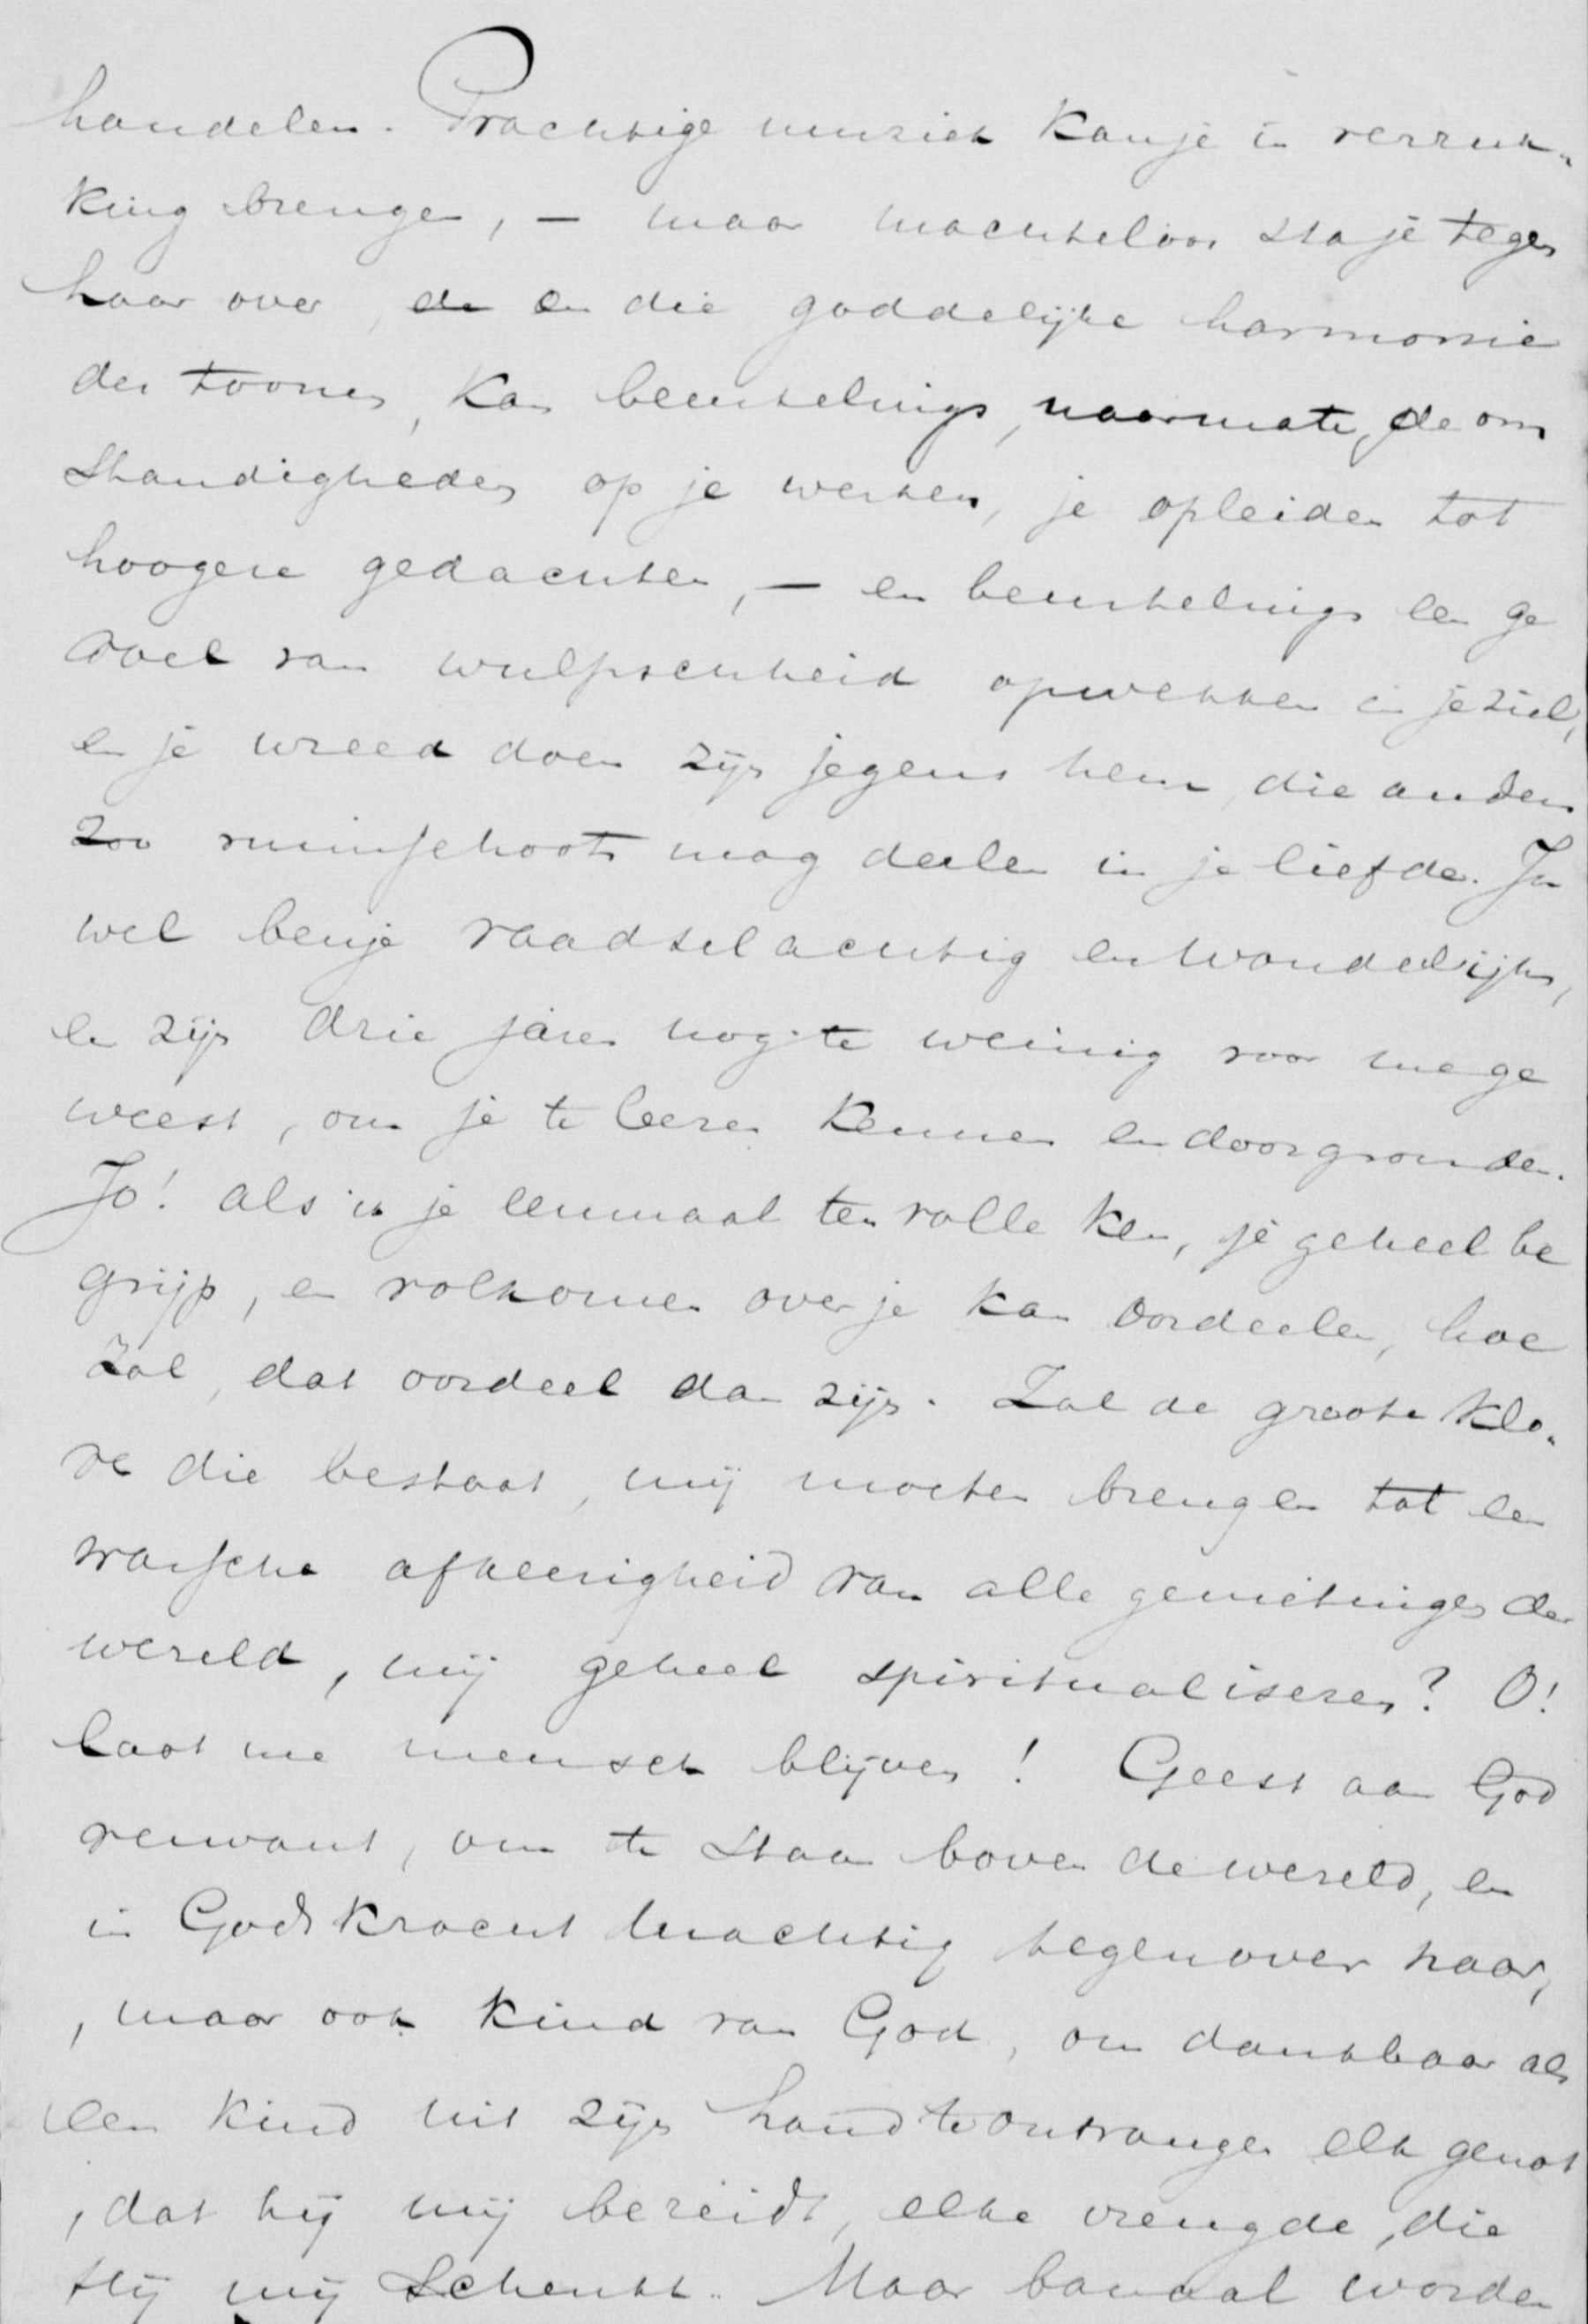 handelen. Prachtige muziek kan je in verruk-
king brengen, – maar machteloos sta je tegen
haar over, de en die goddelijke harmonie
der toonen, kan beurtelings, naarmate, de om
standigheden op je werken, je opleiden tot
hoogere gedachten, – en beurtelings een ge
voel van wulpschheid opwekken in je ziel,
en je wreed doen zijn jegens hem, die anders
zoo ruimschoots mag deelen in je liefde. Ja
wel ben je raadselachtig en wonderlijk,
en zijn drie jaren nog te weinig voor me ge
weest, om je te leeren kennen en doorgronden.
Jo! als ik je eenmaal ten volle ken, je geheel be
grijp, en volkomen over je kan oordeelen, hoe
zal, dat oordeel dan zijn. Zal de groote klo-
ve die bestaat, mij moeten brengen tot een
valsche afkeerigheid van alle genietingen der
wereld, mij geheel spiritualiseren? O!
laat me mensch blijven! Geest aan God
verwant, om te staan boven de wereld, en
in Gods kracht machtig tegenover haar,
, maar ook kind van God, om dankbaar als
een kind uit zijn hand te ontvangen elk genot
, dat hij mij bereidt, elke vreugde, die
Hij mij schenkt. Maar banaal worden